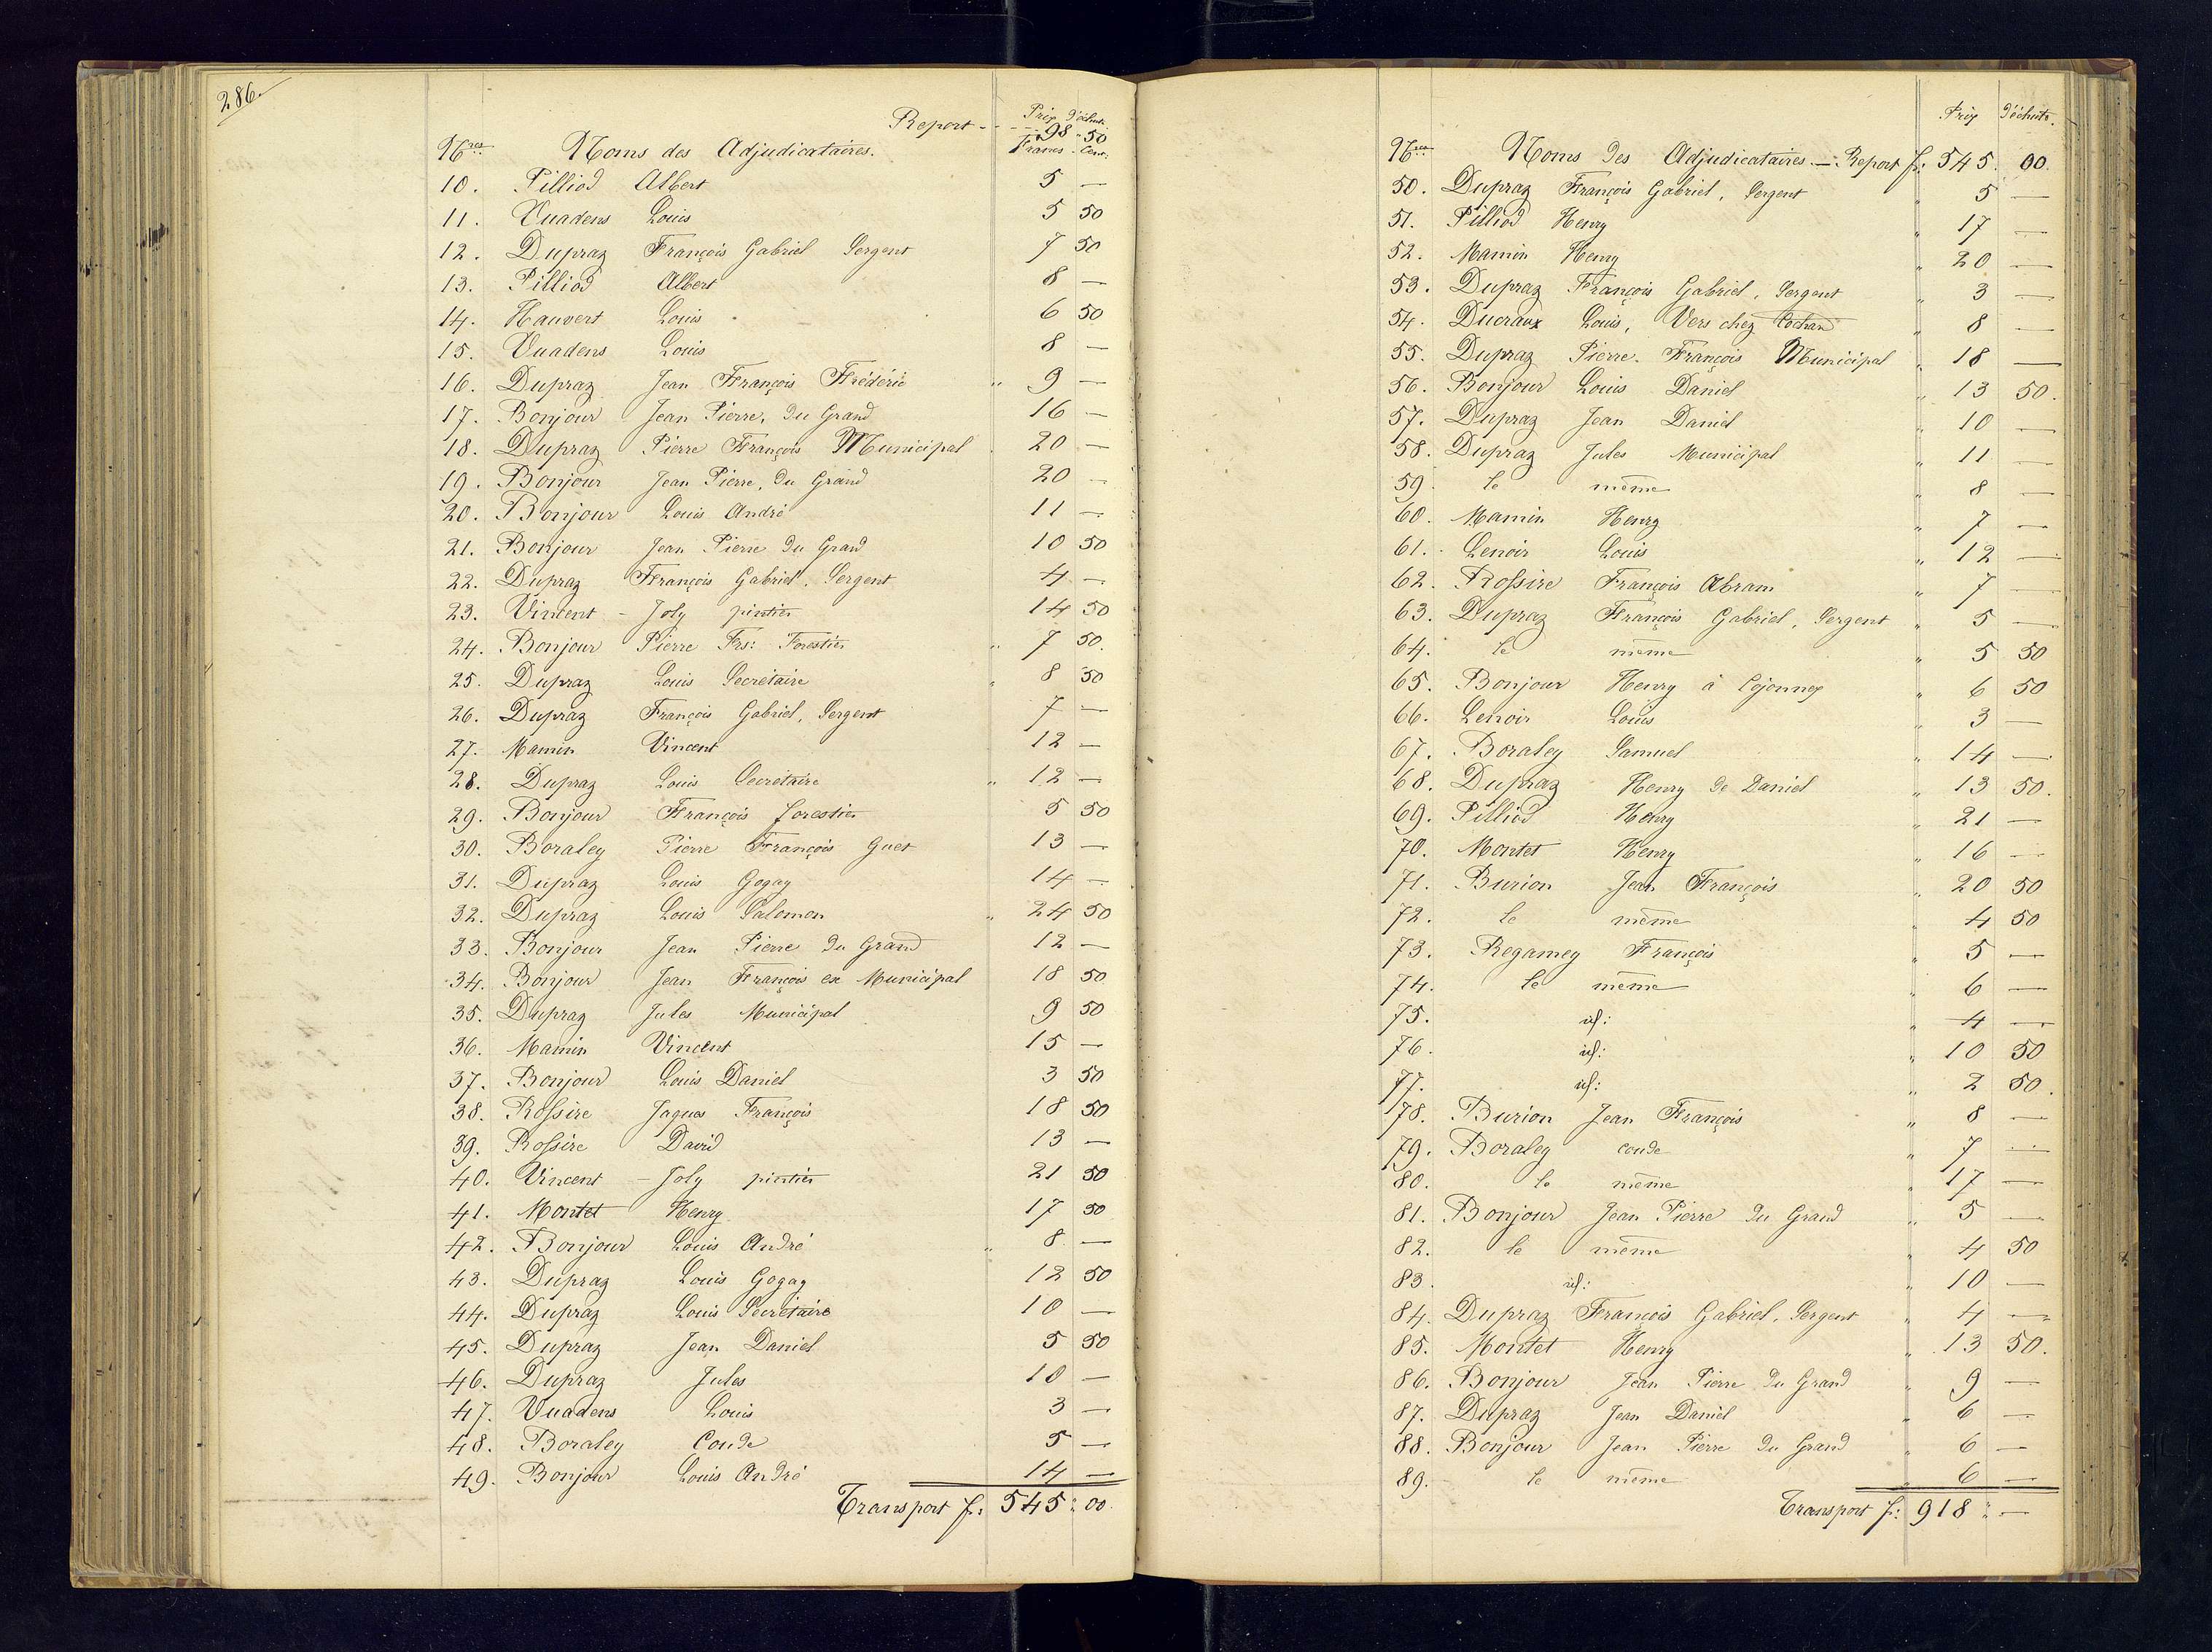 286.
Report - - - 98 " 50
Prix d'échute.
N.ros Noms des Adjudicataires. Francs Cent:
10. Pilliod Albert 5 —
11. Vuadens Louis 5 50
12. Dupraz François Gabriel Sergent 7 50
13. Pilliod Albert 8 —
14. Hauvert Louis 6 50
15. Vuadens Louis 8 —
16. Dupraz Jean François Frédéric " 9 —
17. Bonjour Jean Pierre, du Grand 16 —
18. Dupraz Pierre François Municipal 20 —
19. Bonjour Jean Pierre, du Grand 20 —
20. Bonjour Louis André 11 —
21. Bonjour Jean Pierre du Grand 10 50
22. Dupraz François Gabriel, Sergent 4 —
23. Vincent - Joly pintier 14 50
24. Bonjour Pierre Frs: Forestier " 7 50.
25. Dupraz Louis Secrétaire " 8 50
26. Dupraz François Gabriel, Sergent 7 —
27. Mamin Vincent 12 —
28. Dupraz Louis Secrétaire " 12 —
29. Bonjour François forestier 5 50
30. Boraley Pierre François Guet 13 —
31. Dupraz Louis Gogay 14 —
32. Dupraz Louis Salomon " 24 50
33. Bonjour Jean Pierre du Grand 12 —
34. Bonjour Jean François ex Municipal 18 50
35. Dupraz Jules Municipal 9 50
36. Mamin Vincent 15 —
37. Bonjour Louis Daniel 3 50
38. Rossire Jaques François 18 50
39. Rossire David 13 —
40. Vincent - Joly pintier 21 50
41. Montet Henry 17 50
42. Bonjour Louis André " 8 —
43. Dupraz Louis Gogay 12 50
44. Dupraz Louis Secrétaire 10 —
45. Dupraz Jean Daniel 5 50
46. Dupraz Jules 10 —
47. Vuadens Louis 3 —
48. Boraley Coude 5 —
49. Bonjour Louis André 14 —
Transport f: 545 " 00.
Prix d'échute.
N.ros Noms des Adjudicataires. — Report f: 545. 00.
50. Dupraz François Gabriel, Sergent " 5 —
51. Pilliod Henry " 17 —
52. Mamin Henry " 20 —
53. Dupraz François Gabriel, Sergent " 3 —
54. Ducraux Louis, Vers chez Cochard " 8 —
55. Dupraz Pierre-François Municipal " 18 —
56. Bonjour Louis Daniel " 13 50.
57. Dupraz Jean Daniel " 10 —
58. Dupraz Jules Municipal " 11 —
59. le même " 8 —
60. Mamin Henry " 7 —
61. Lenoir Louis " 12 —
62. Rossire François Abram " 7 —
63. Dupraz François Gabriel, Sergent " 5 —
64. le même " 5 50
65. Bonjour Henry à Cojonnex " 6 50
66. Lenoir Louis " 3 —
67. Boraley Samuel " 14 —
68. Dupraz Henry de Daniel " 13 50.
69. Pilliod Henry " 21 —
70. Montet Henry " 16 —
71. Burion Jean François " 20 50
72. le même " 4 50
73. Regamey François " 5 —
74. le même " 6 —
75. id: " 4 —
76. id: " 10 50
77. id: " 2 50.
78. Burion Jean François " 8 —
79. Boraley coude " 7 —
80. le même " 17 —
81. Bonjour Jean Pierre du Grand " 5 —
82. le même " 4 50
83. id: " 10 —
84. Dupraz François Gabriel, Sergent " 4 —
85. Montet Henry " 13 50.
86. Bonjour Jean Pierre du Grand " 9 —
87. Dupraz Jean Daniel " 6 —
88. Bonjour Jean Pierre du Grand " 6 —
89. le même " 6 —
Transport f: 918 " —